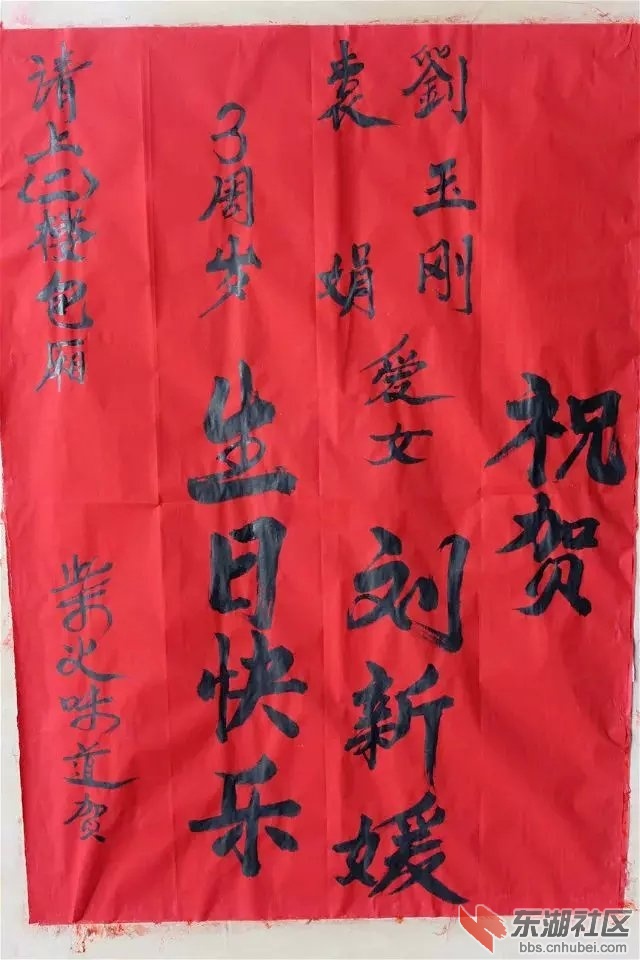 祝贺
劉玉刚
袁娟
爱女
刘新媛
3周岁
生日快乐
请上(二)楼包厢
柴火味道贺
东湖社区
bbs.cnhubei.com